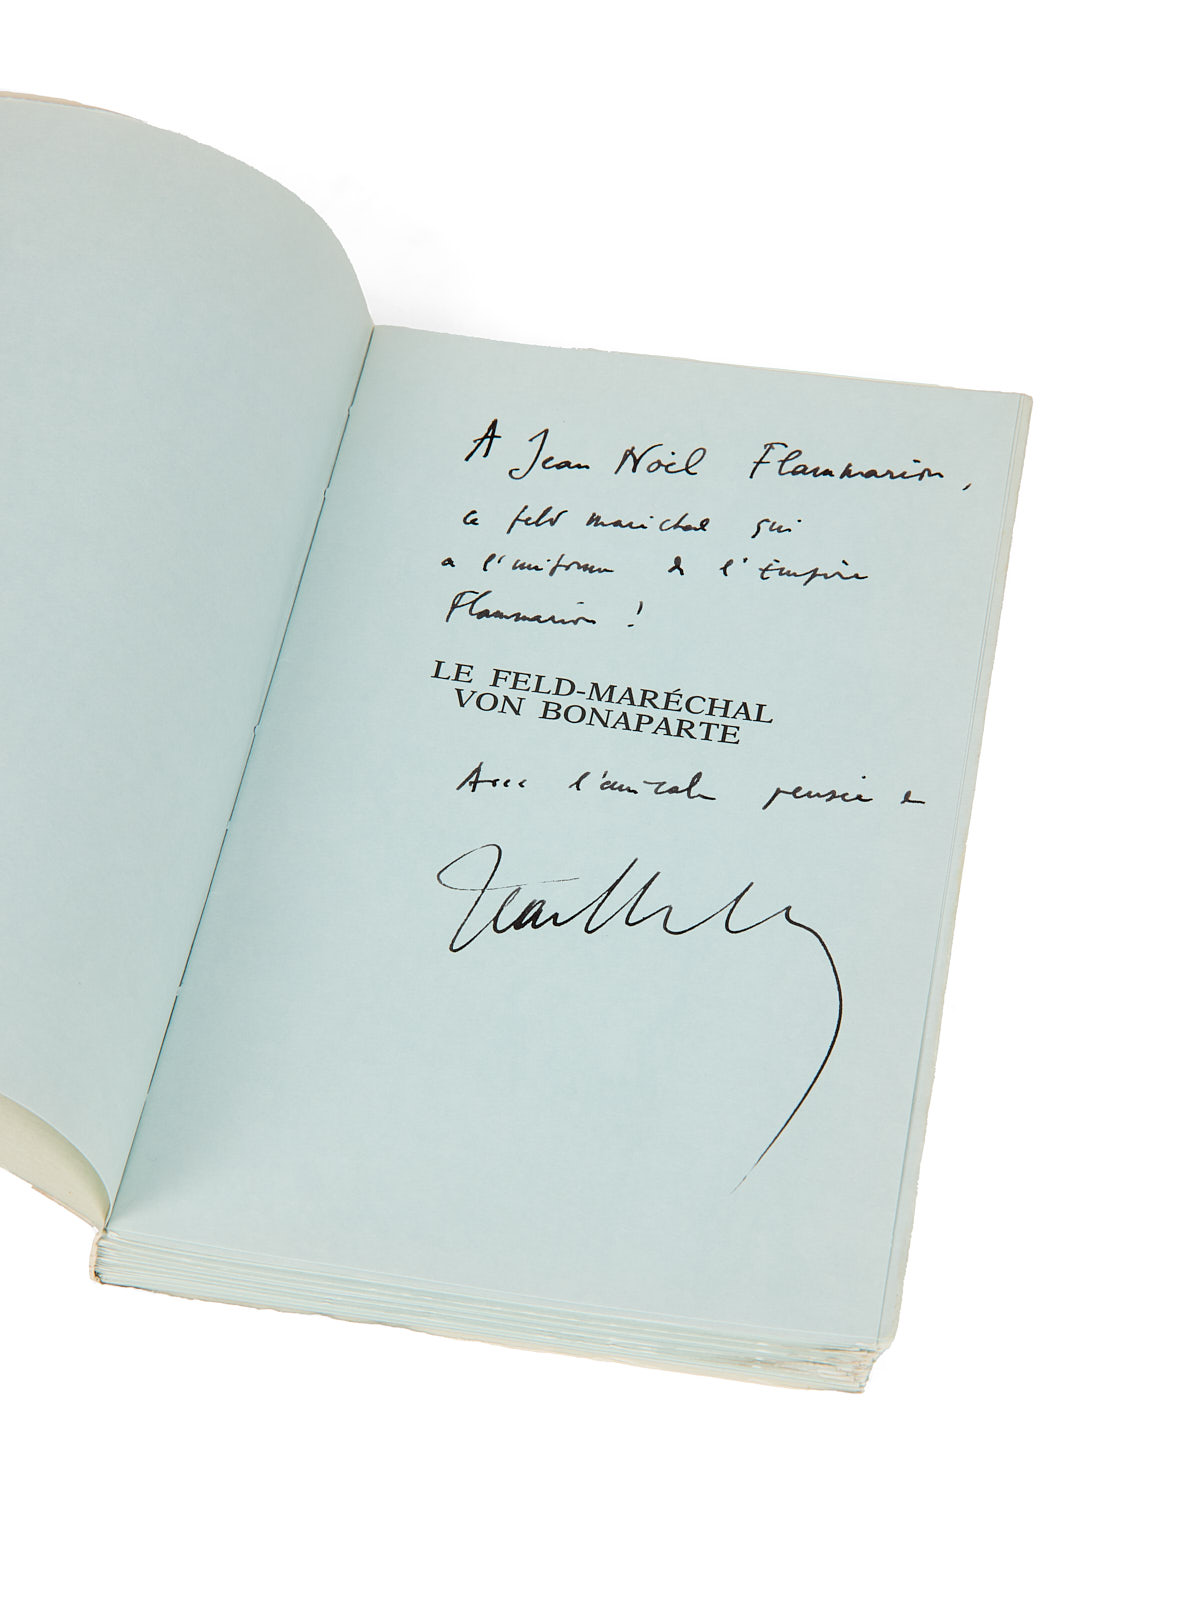 A Jean Noël Flammarion,
ce feld maréchal qui
a l'uniforme de l'Empire
Flammarion !
LE FELD-MARÉCHAL
VON BONAPARTE
Avec l'amicale pensée de
Jean